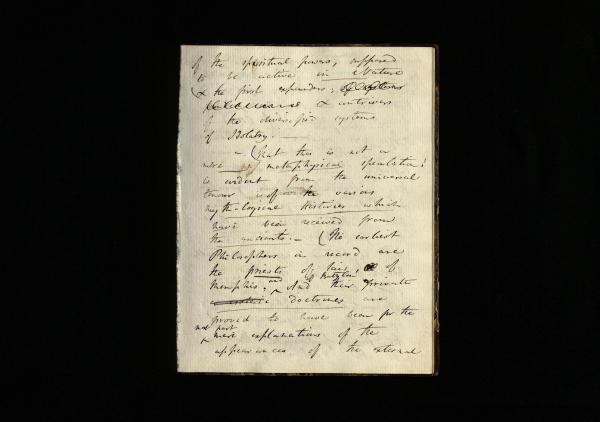 of the spiritual powers, supposed
to be active in Nature
& the first expounders,
& contrivers
of the diversified systems
of Idolatry. —
— (That this is not a
mere metaphysical speculation!
is evident from the universal
tenour of the various
mythological Histories which
have been received from
the ancients. — (The earliest
Philosophers on record are
the priests of Sais, of
Memphis, and of Babylon; And their private
doctrines are
proved to have been for the
most part mere explanations of the
appearances of the external